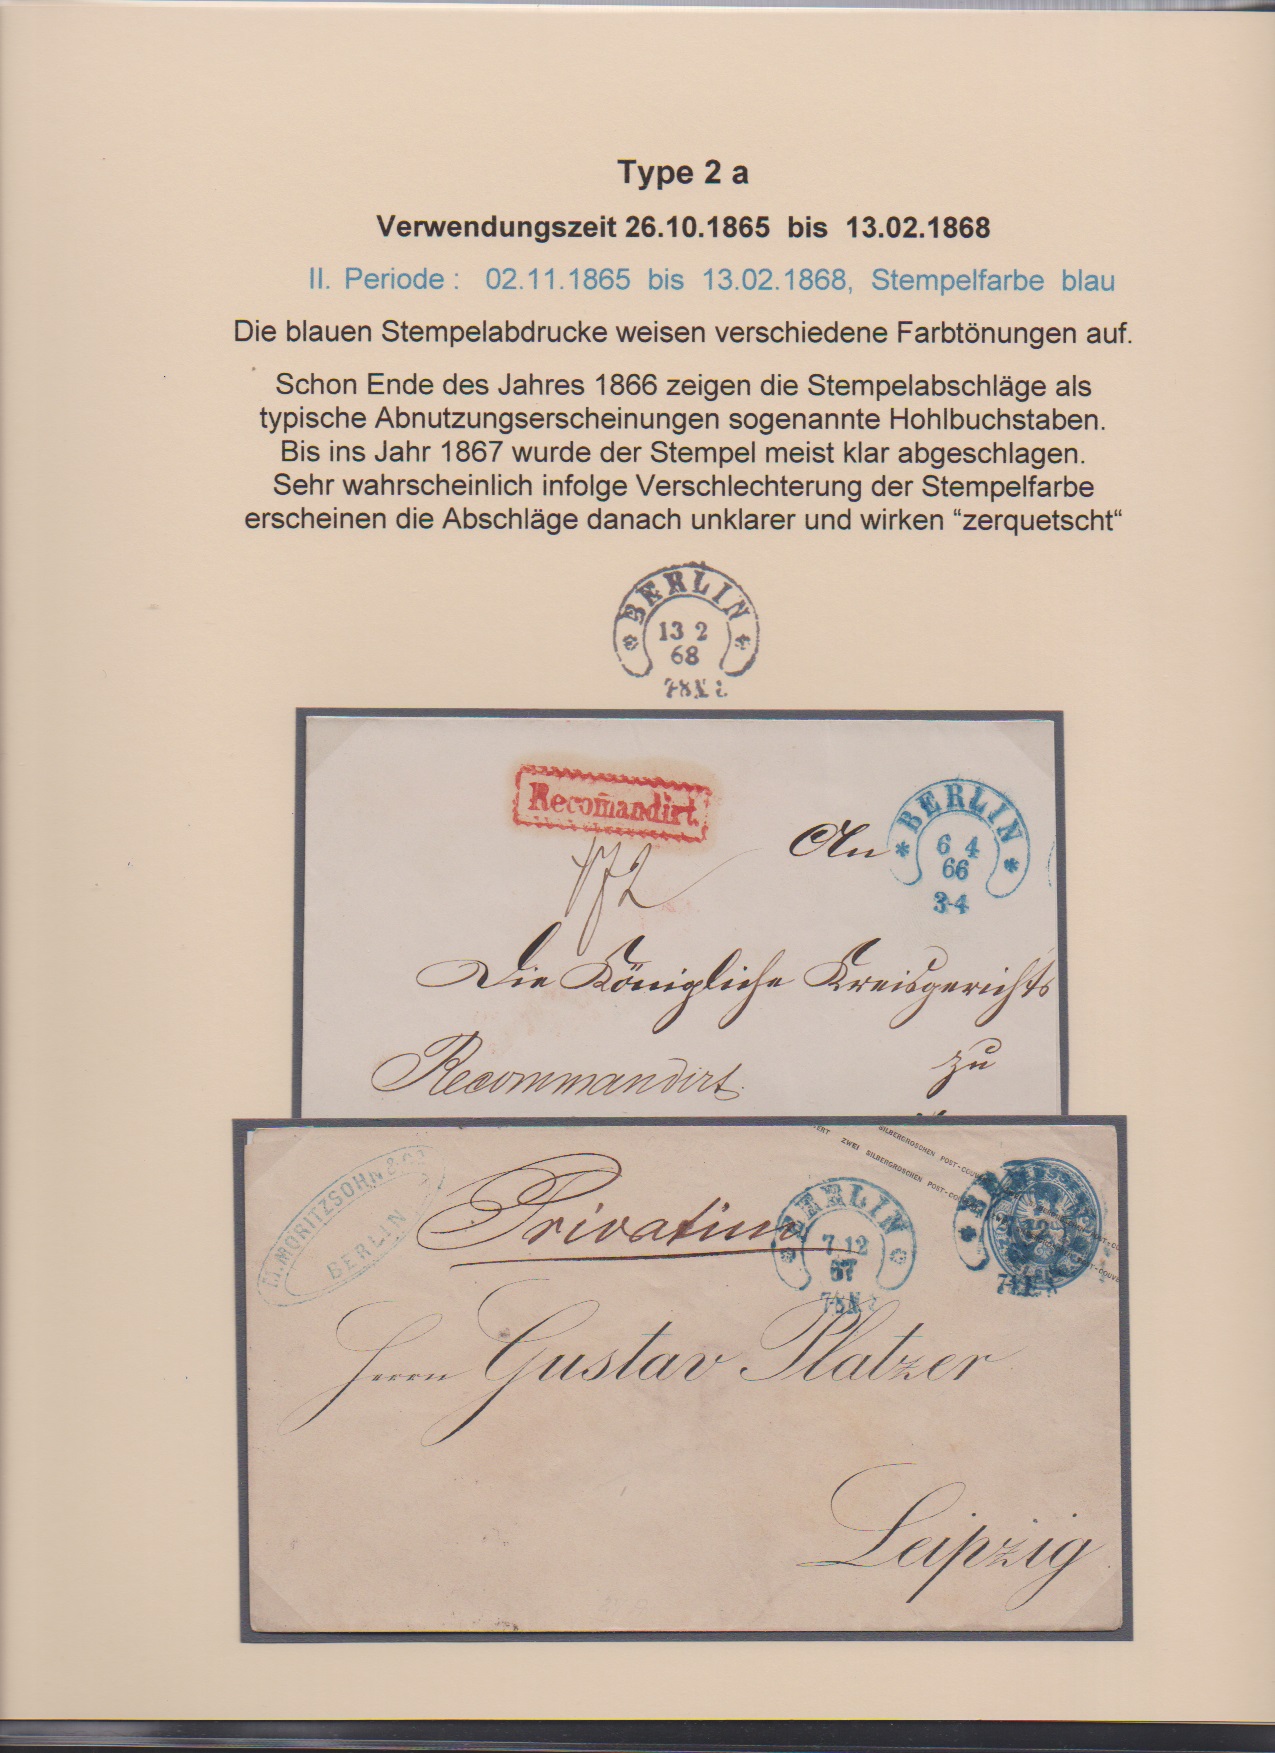 Type 2 a
Verwendungszeit 26.10.1865 bis 13.02.1868
II. Periode : 02.11.1865 bis 13.02.1868, Stempelfarbe blau
Die blauen Stempelabdrucke weisen verschiedene Farbtönungen auf.
Schon Ende des Jahres 1866 zeigen die Stempelabschläge als
typische Abnutzungserscheinungen sogenannte Hohlbuchstaben.
Bis ins Jahr 1867 wurde der Stempel meist klar abgeschlagen.
Sehr wahrscheinlich infolge Verschlechterung der Stempelfarbe
erscheinen die Abschläge danach unklarer und wirken “zerquetscht“
BERLIN
13 2
68
Recom̄andirt.
BERLIN
6 4
66
3-4
An
172
Die Königliche Kreisgerichts
zu
Recommandirt.
ZWEI SILBERGROSCHEN POST-COUV
SILBERGROSCHEN POST-COUV
M. MORITZSOHN & Co
BERLIN
Privatim
BERLIN
7 12
67
Herrn Gustav Platzer
Leipzig